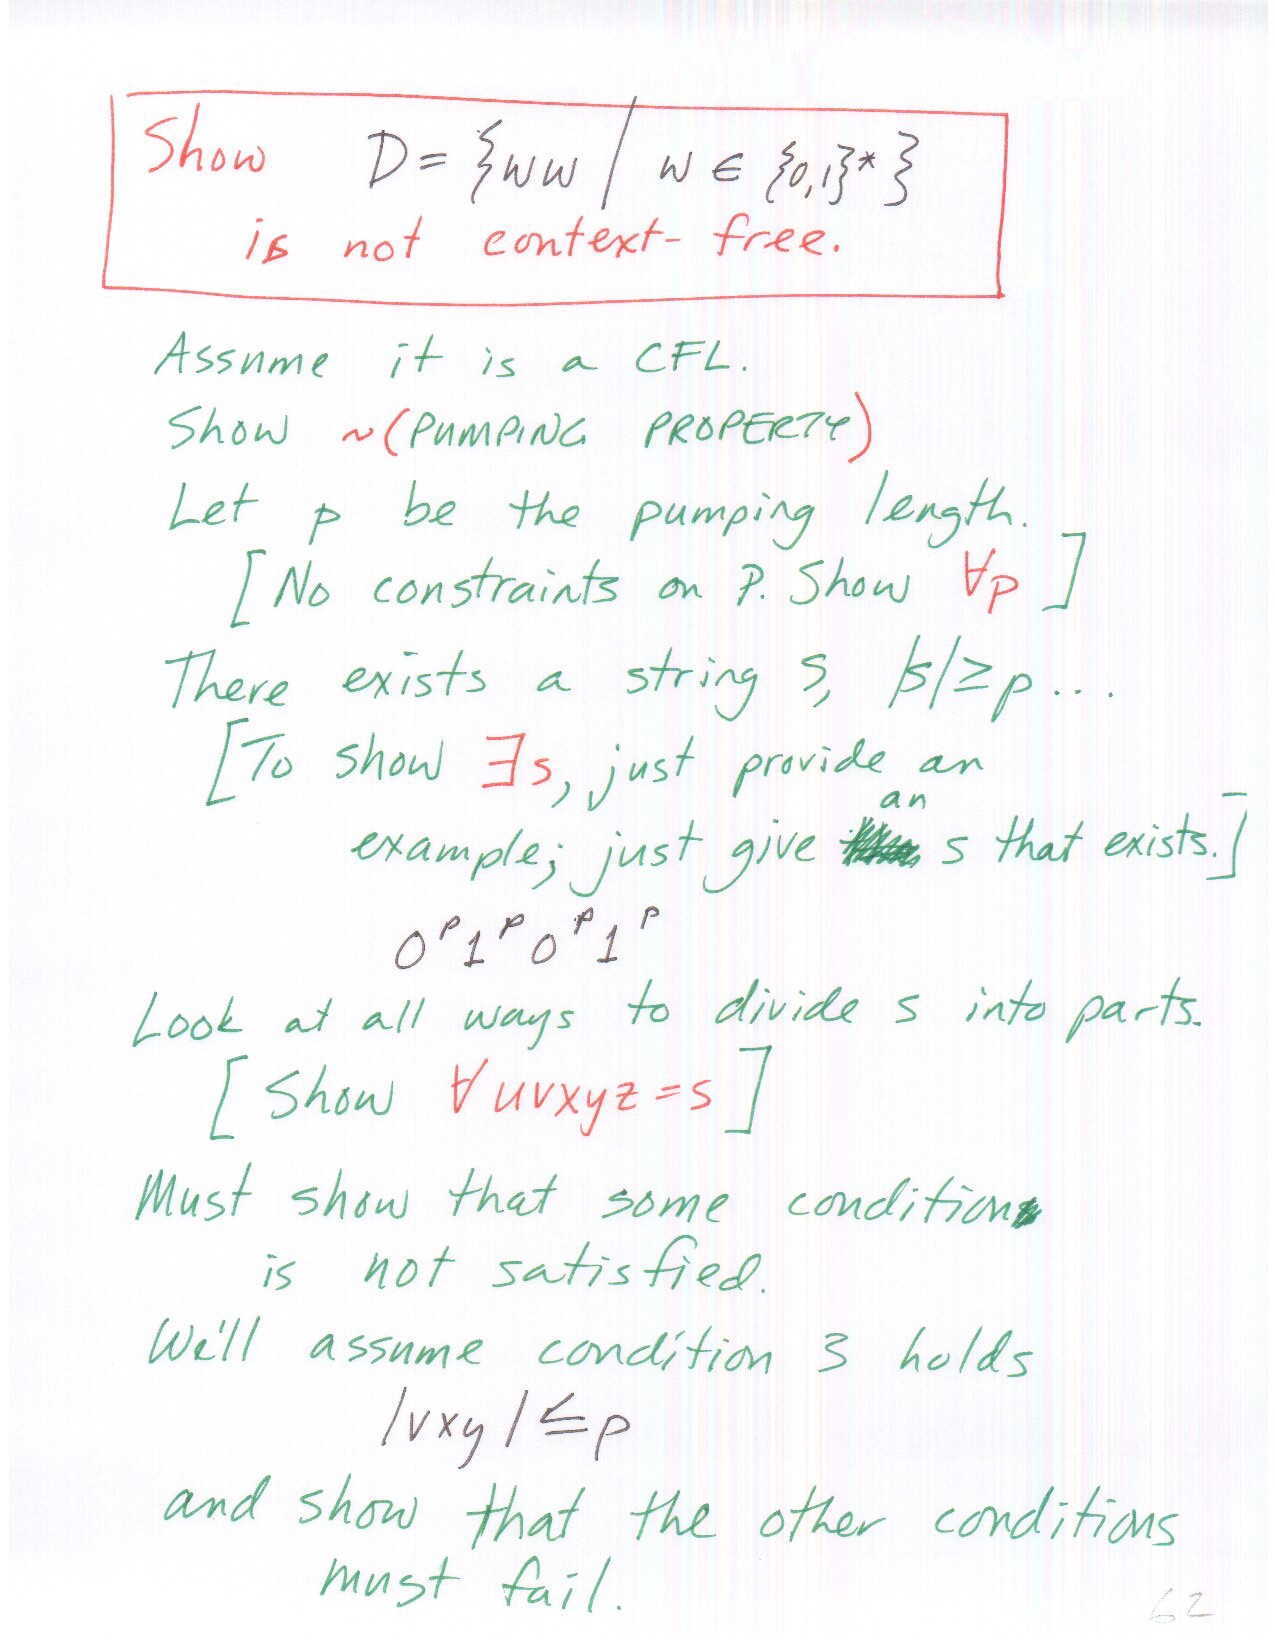 Show D = {ww | w ∈ {0,1}* }
is not context-free.
Assume it is a CFL.
Show ~(PUMPING PROPERTY)
Let p be the pumping length.
[No constraints on P. Show ∀p]
There exists a string S, |s| ≥ p ...
[To show ∃s, just provide an
an
example; just give s that exists.]
0ᵖ1ᵖ0ᵖ1ᵖ
Look at all ways to divide s into parts.
[Show ∀uvxyz = s]
Must show that some condition
is not satisfied.
We'll assume condition 3 holds
|vxy| ≤ p
and show that the other conditions
must fail.
62